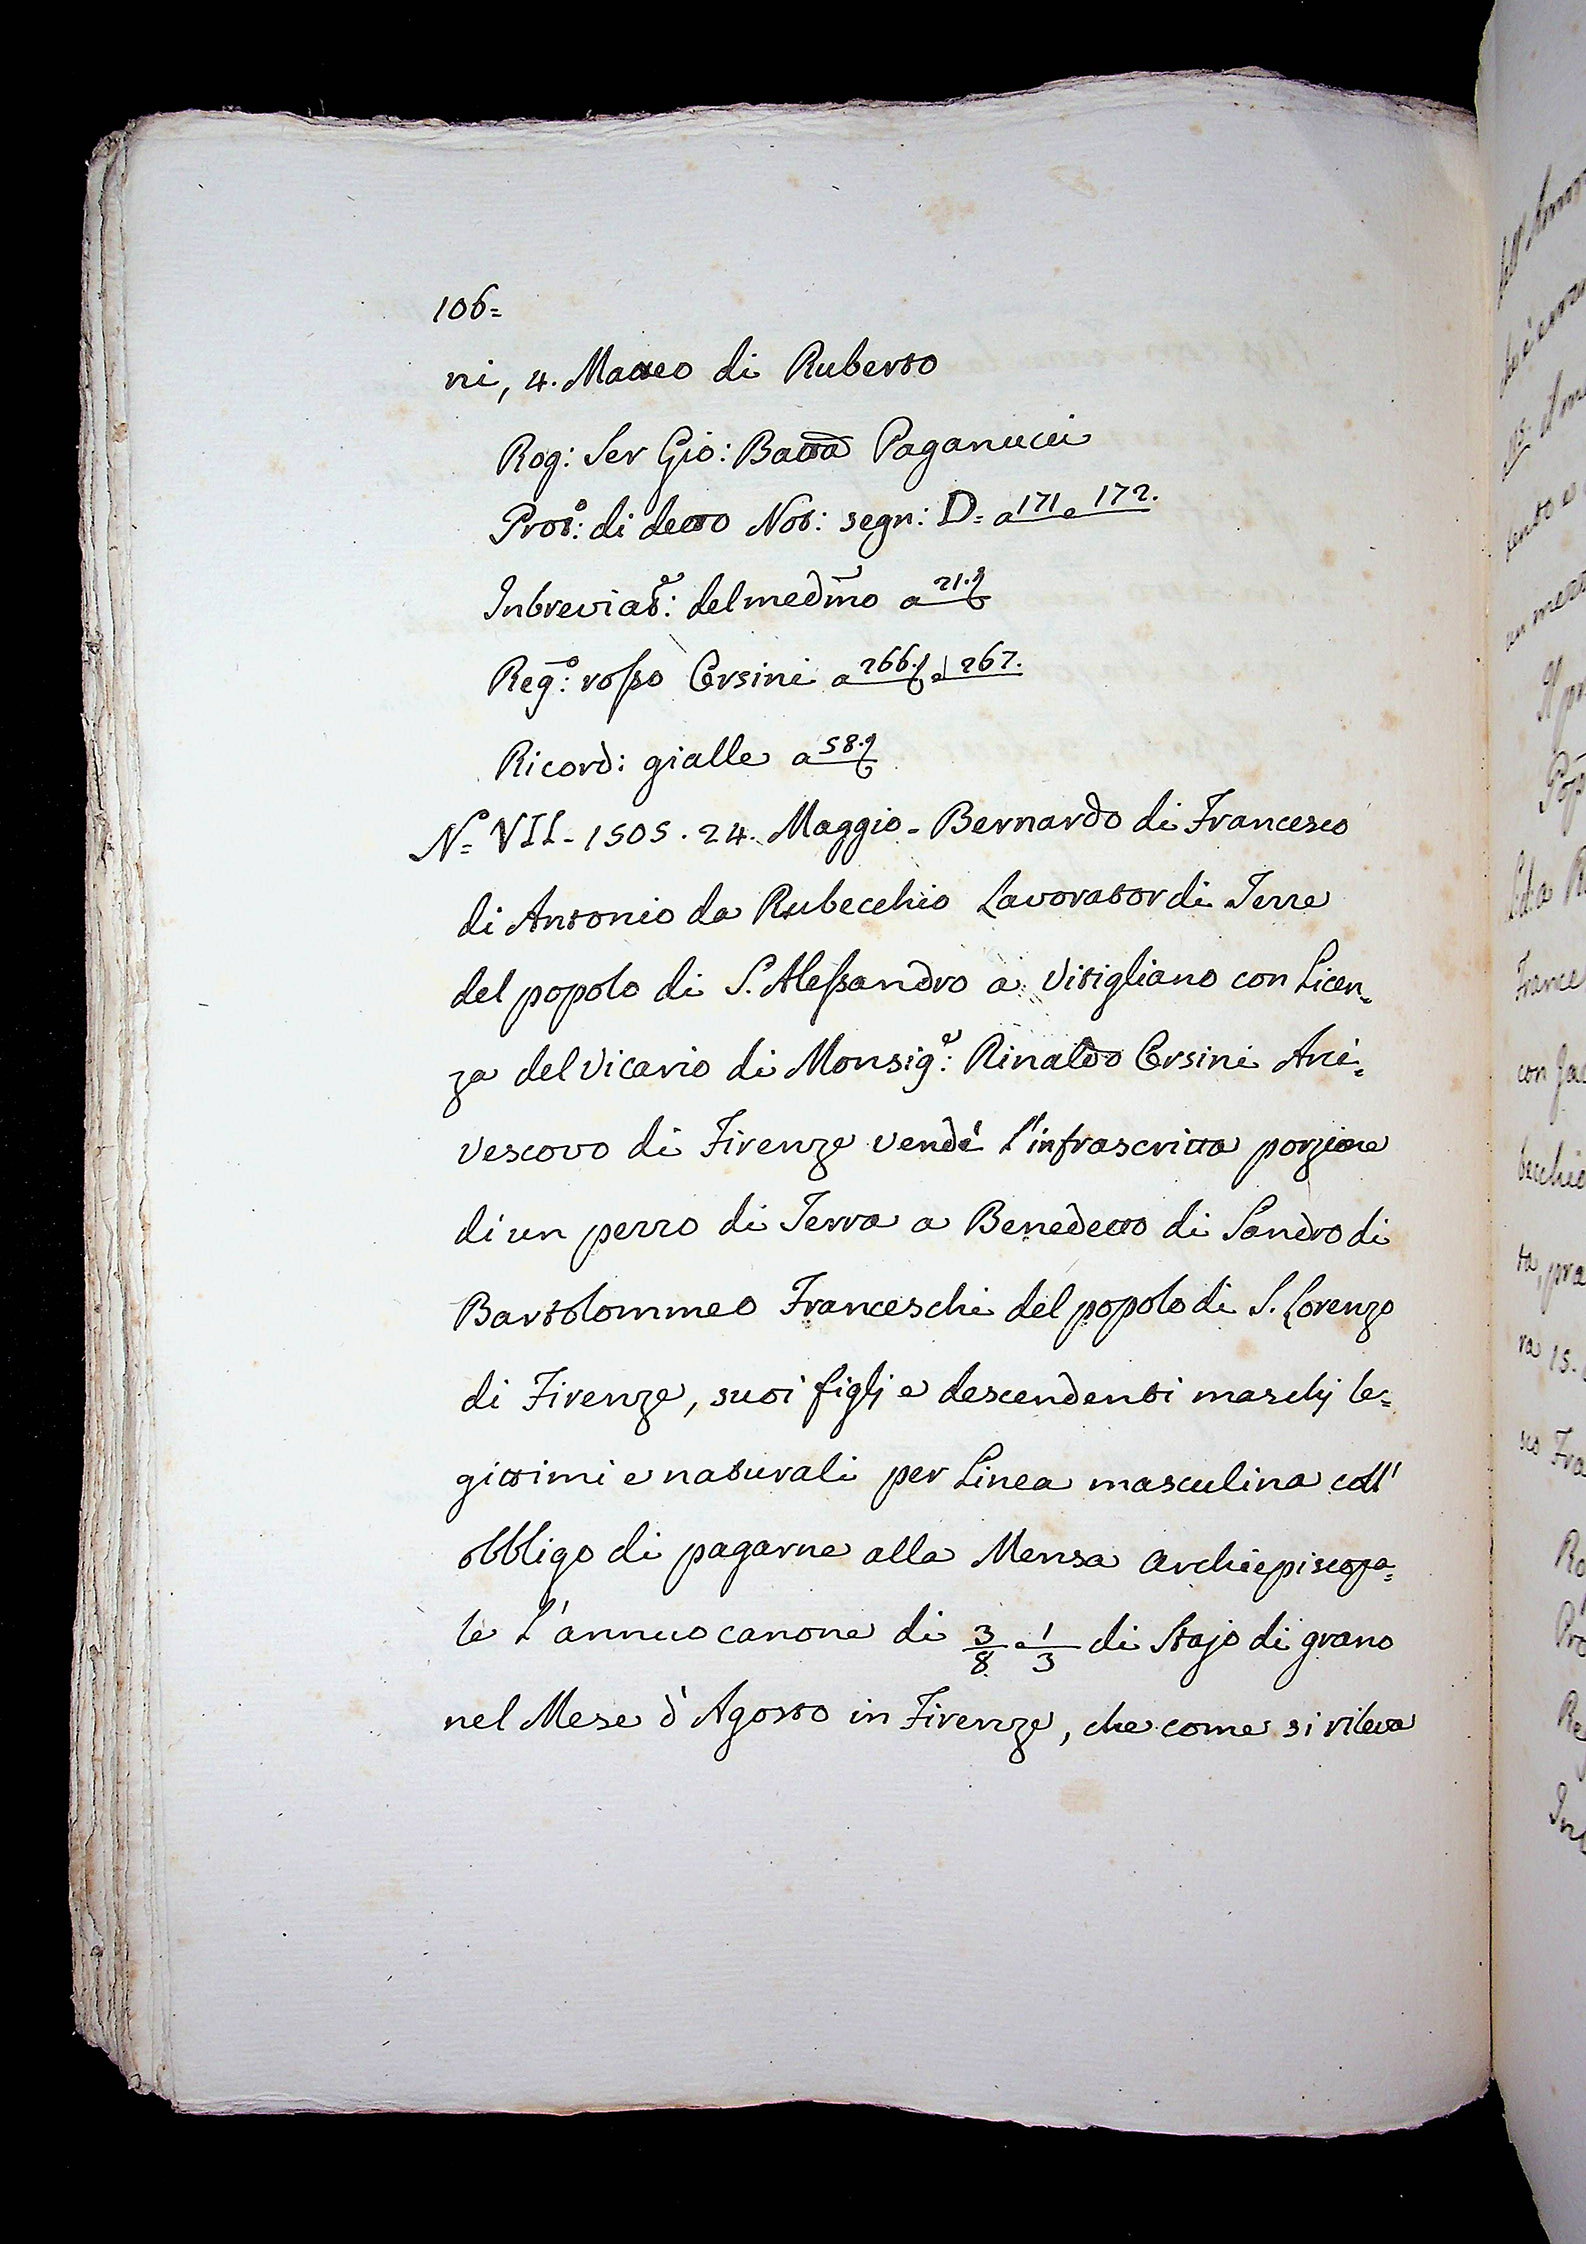 106=
ni, 4. Matteo di Ruberto
Rog: Ser Gio: Batta Paganucci
Prot.º: di detto Not: segn: D= a 171 e 172.
Inbreviat.e: del medmo a 21.
Reg.º: rosso Orsini a 266. e 267.
Ricord: gialle a 58.
Nº= VII - 1505. 24. Maggio - Bernardo di Francesco
di Antonio da Rubecchio Lavorator di Terre
del popolo di S. Alessandro a Vitigliano con Licen=
za del Vicario di Monsig.e: Rinaldo Orsini Arci=
vescovo di Firenze vendé l'infrascritta porzione
di un pezzo di Terra a Benedetto di Sandro di
Bartolommeo Franceschi del popolo di S. Lorenzo
di Firenze, suoi figlj e descendenti maschj le=
gittimi e naturali per Linea masculina coll'
obbligo di pagarne alla Mensa Archiepiscopa=
le l'annuo canone di 3/8 e 1/3 di Stajo di grano
nel Mese d'Agosto in Firenze, che come si rileva